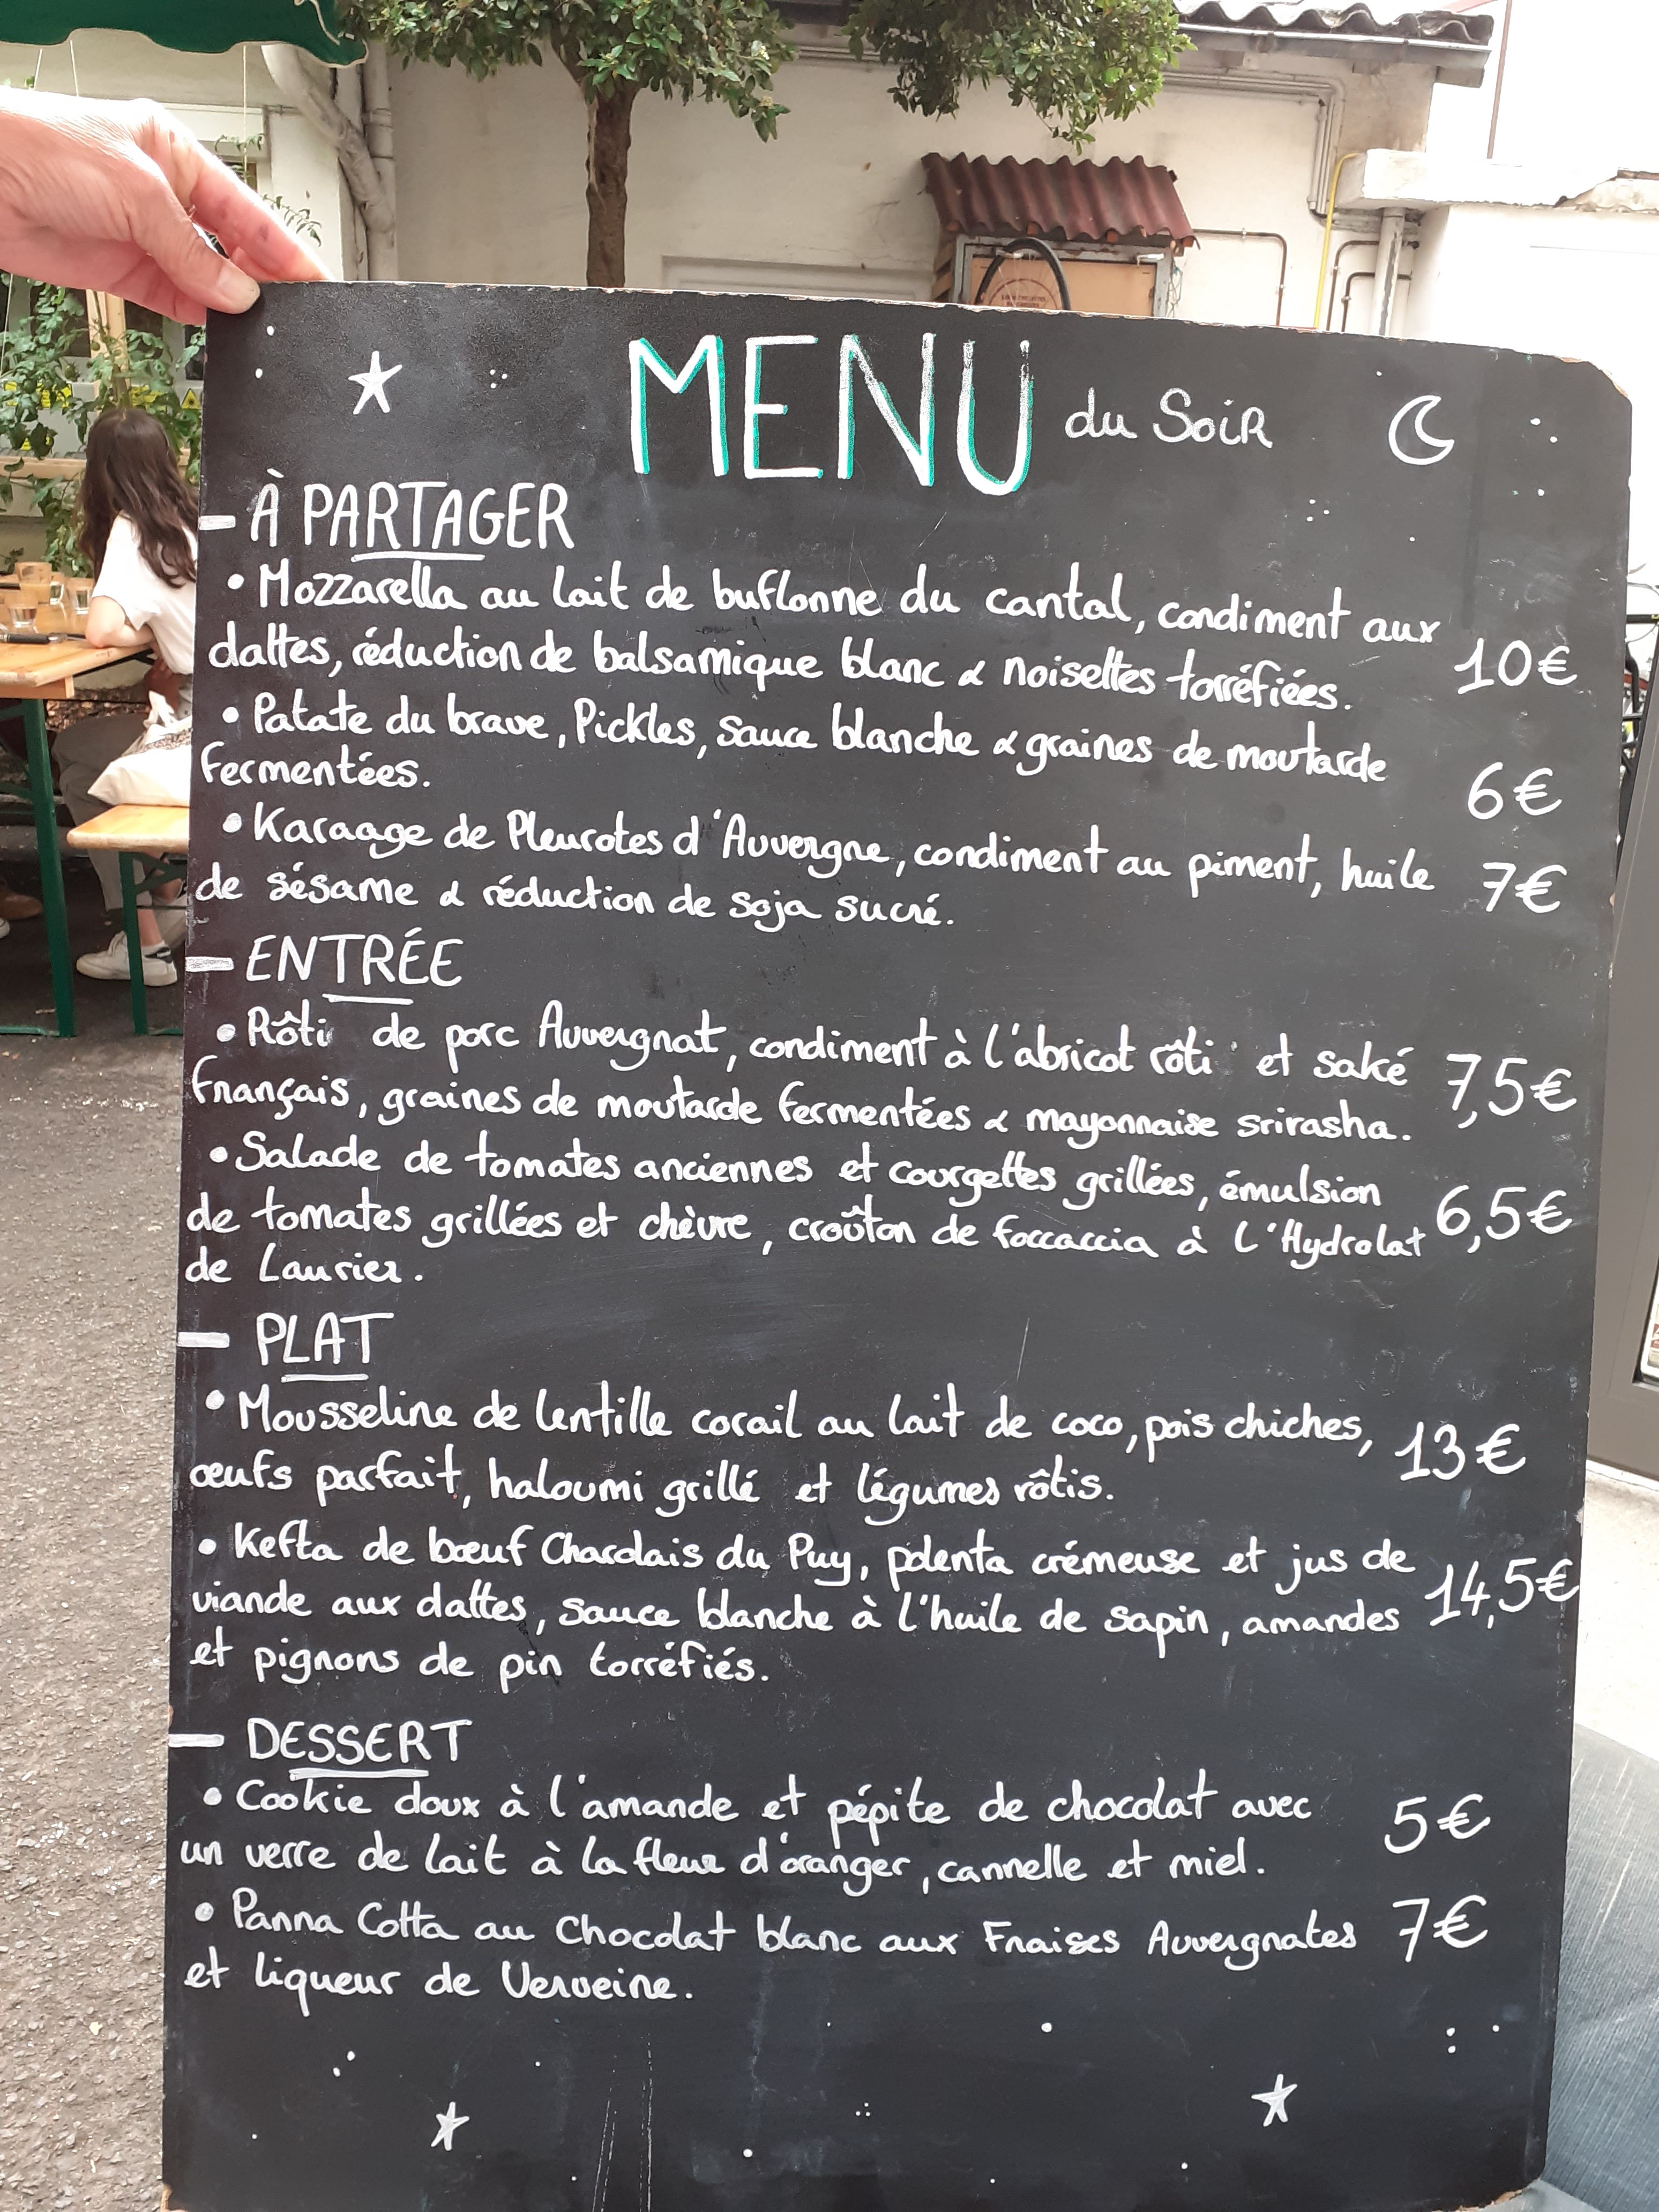 MENU du Soir
- À PARTAGER
• Mozzarella au lait de buflonne du cantal, condiment aux
dattes, réduction de balsamique blanc & noisettes torréfiées. 10€
• Patate du brave, Pickles, sauce blanche & graines de moutarde
fermentées. 6€
• Karaage de Pleurotes d'Auvergne, condiment au piment, huile
de sésame & réduction de soja sucré. 7€
- ENTRÉE
• Rôti de porc Auvergnat, condiment à l'abricot rôti et saké
Français, graines de moutarde fermentées & mayonnaise srirasha. 7,5€
• Salade de tomates anciennes et courgettes grillées, émulsion
de tomates grillées et chèvre, croûton de foccaccia à l'Hydrolat 6,5€
de Laurier.
- PLAT
• Mousseline de lentille corail au lait de coco, pois chiches, 13€
œufs parfait, haloumi grillé et légumes rôtis.
• Kefta de bœuf Charolais du Puy, polenta crémeuse et jus de
viande aux dattes, sauce blanche à l'huile de sapin, amandes 14,5€
et pignons de pin torréfiés.
- DESSERT
• Cookie doux à l'amande et pépite de chocolat avec 5€
un verre de lait à la fleur d'oranger, cannelle et miel.
• Panna Cotta au Chocolat blanc aux Fraises Auvergnates 7€
et liqueur de Verveine.